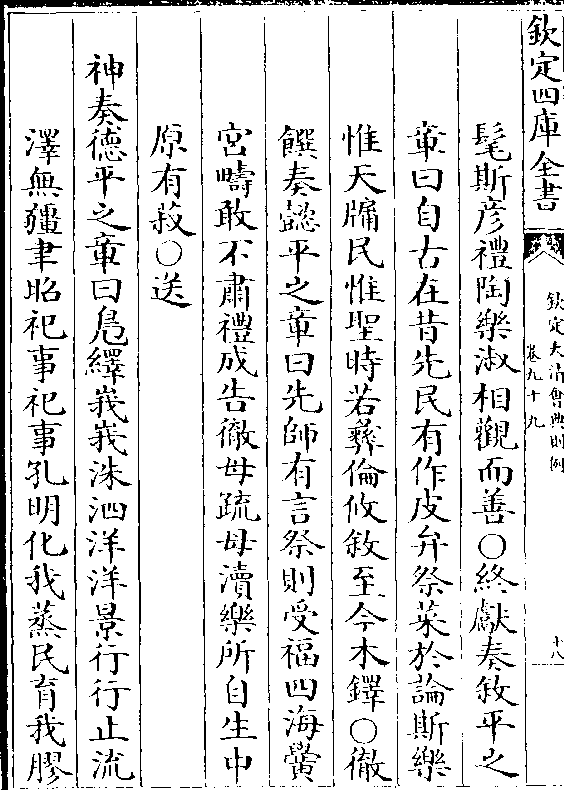 欽定四庫全書
欽定大清會典則例
卷九十九
十八
髦斯彦禮陶樂淑相觀而善○終獻奏敘平之
章曰自古在昔先民有作皮弁祭菜於論斯樂
惟天牖民惟聖時若彝倫攸敘至今木鐸○徹
饌奏懿平之章曰先師有言祭則受福四海黌
宮疇敢不肅禮成告徹毋疏毋瀆樂所自生中
原有菽○送
神奏德平之章曰鳬繹峩峩洙泗洋洋景行行止流
澤無疆聿昭祀事祀事孔明化我蒸民育我膠